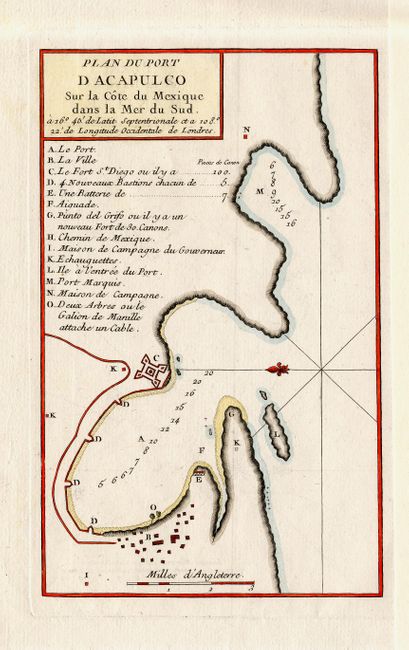 PLAN DU PORT
D'ACAPULCO
Sur la Côte du Mexique
dans la Mer du Sud.
à 16° 45' de Latit Septentrionale et a 108°
22' de Longitude Occidentale de Londres.
A. Le Port.
B. La Ville Pieces de Canon
C. Le Fort St. Diego ou il y a 100.
D. 4. Nouveaux Bastions chacun de 5.
E. Une Batterie de 7.
F. Aiguade.
G. Punto del Grifo ou il y a un
nouveau Fort de 30. Canons.
H. Chemin de Mexique.
I. Maison de Campagne du Gouverneur.
K. Echauguettes.
L. Ile à l'entrée du Port.
M. Port Marquis.
N. Maison de Campagne.
O. Deux Arbres ou le
Galion de Manille
attache un Cable.
N
6
7
8
M 9
9
10
15
15
16
C
K
20
20
16
15
14
12
D
K
G
L
K
A 10
8
7
7
6
6
5
D
F
E
D
O
D
B
I
Milles d'Angleterre.
1 2 3